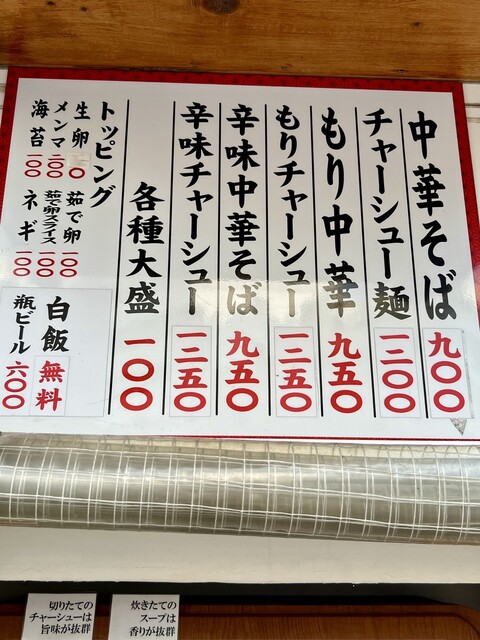 中華そば 九〇〇
チャーシュー麺 一二〇〇
もり中華 九五〇
もりチャーシュー 一二五〇
辛味中華そば 九五〇
辛味チャーシュー 一二五〇
各種大盛 一〇〇
トッピング
生卵
茹で卵 一〇〇
メンマ 二〇〇
茹で卵スライス 一〇〇
海苔 一〇〇
ネギ 一〇〇
白飯 無料
瓶ビール 六〇〇
切りたての
チャーシューは
旨味が抜群
炊きたての
スープは
香りが抜群